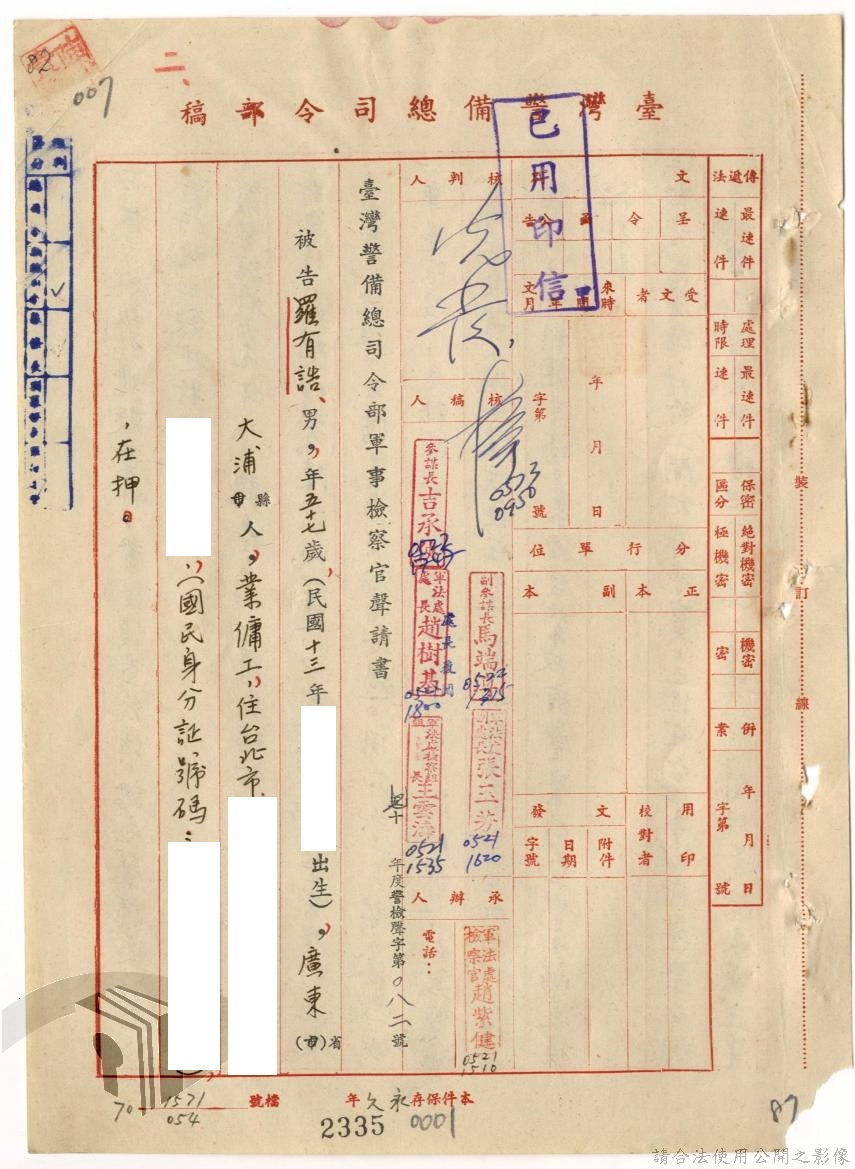 82
007
二、
臺灣警備總司令部稿
已用印信
傳遞法
最速件
速件
處理時限
最速件
速件
保密區分
絕對機密
極機密
機密
密
併案
年月日
字第號
文
呈
令
受文者
來文時間
年月日
字第號
分行單位
正本
副本
用印
校對者
發文
附件
日期
字號
核判人
核稿人
0950
副參謀長馬端
張玉芳
0521
1620
參謀長吉承
軍法處處長趙樹基
1800
王雲濤
0521
1535
承辦人
軍法處檢察官趙紫健
0521
1510
電話：
臺灣警備總司令部軍事檢察官聲請書
年度警檢聲字第〇八二號
被告羅有誥、男，年五十七歲，（民國十三年
出生），廣東省（市）
大浦縣市人，業傭工，住台北市
，（國民身分証號碼：
），
，在押。
裝訂線
本件保存永久年
檔號
70
1571
054
2335
0001
87
請合法使用公開之影像